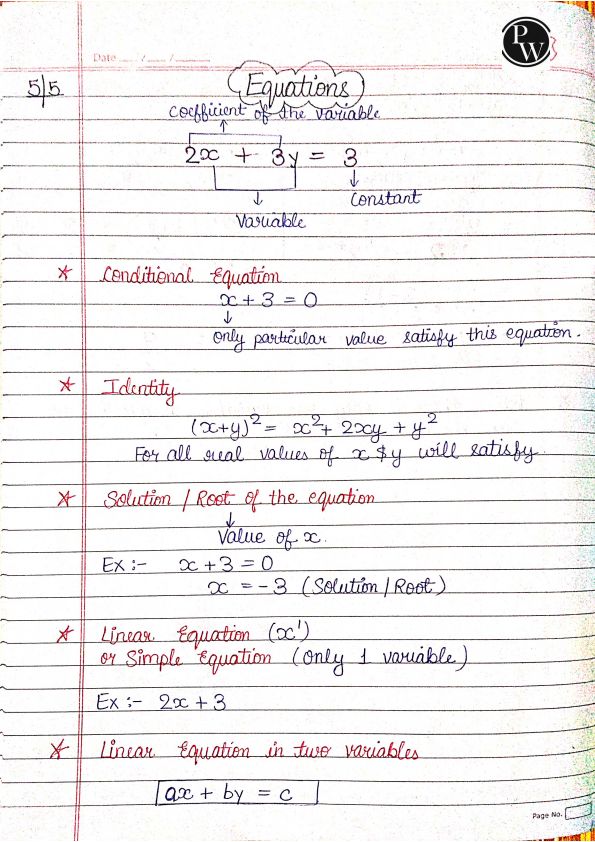 PW
Date
5/5
Equations
coefficient of the variable
2x + 3y = 3
Constant
Variable
* Conditional Equation
x + 3 = 0
↓
only particular value satisfy this equation.
* Identity
(x+y)² = x² + 2xy + y²
For all real values of x $ y will satisfy
* Solution / Root of the equation
↓
Value of x.
Ex :- x + 3 = 0
x = -3 (Solution / Root)
* Linear Equation (x¹)
or Simple Equation (only 1 variable)
Ex :- 2x + 3
* Linear Equation in two variables
ax + by = c
Page No.